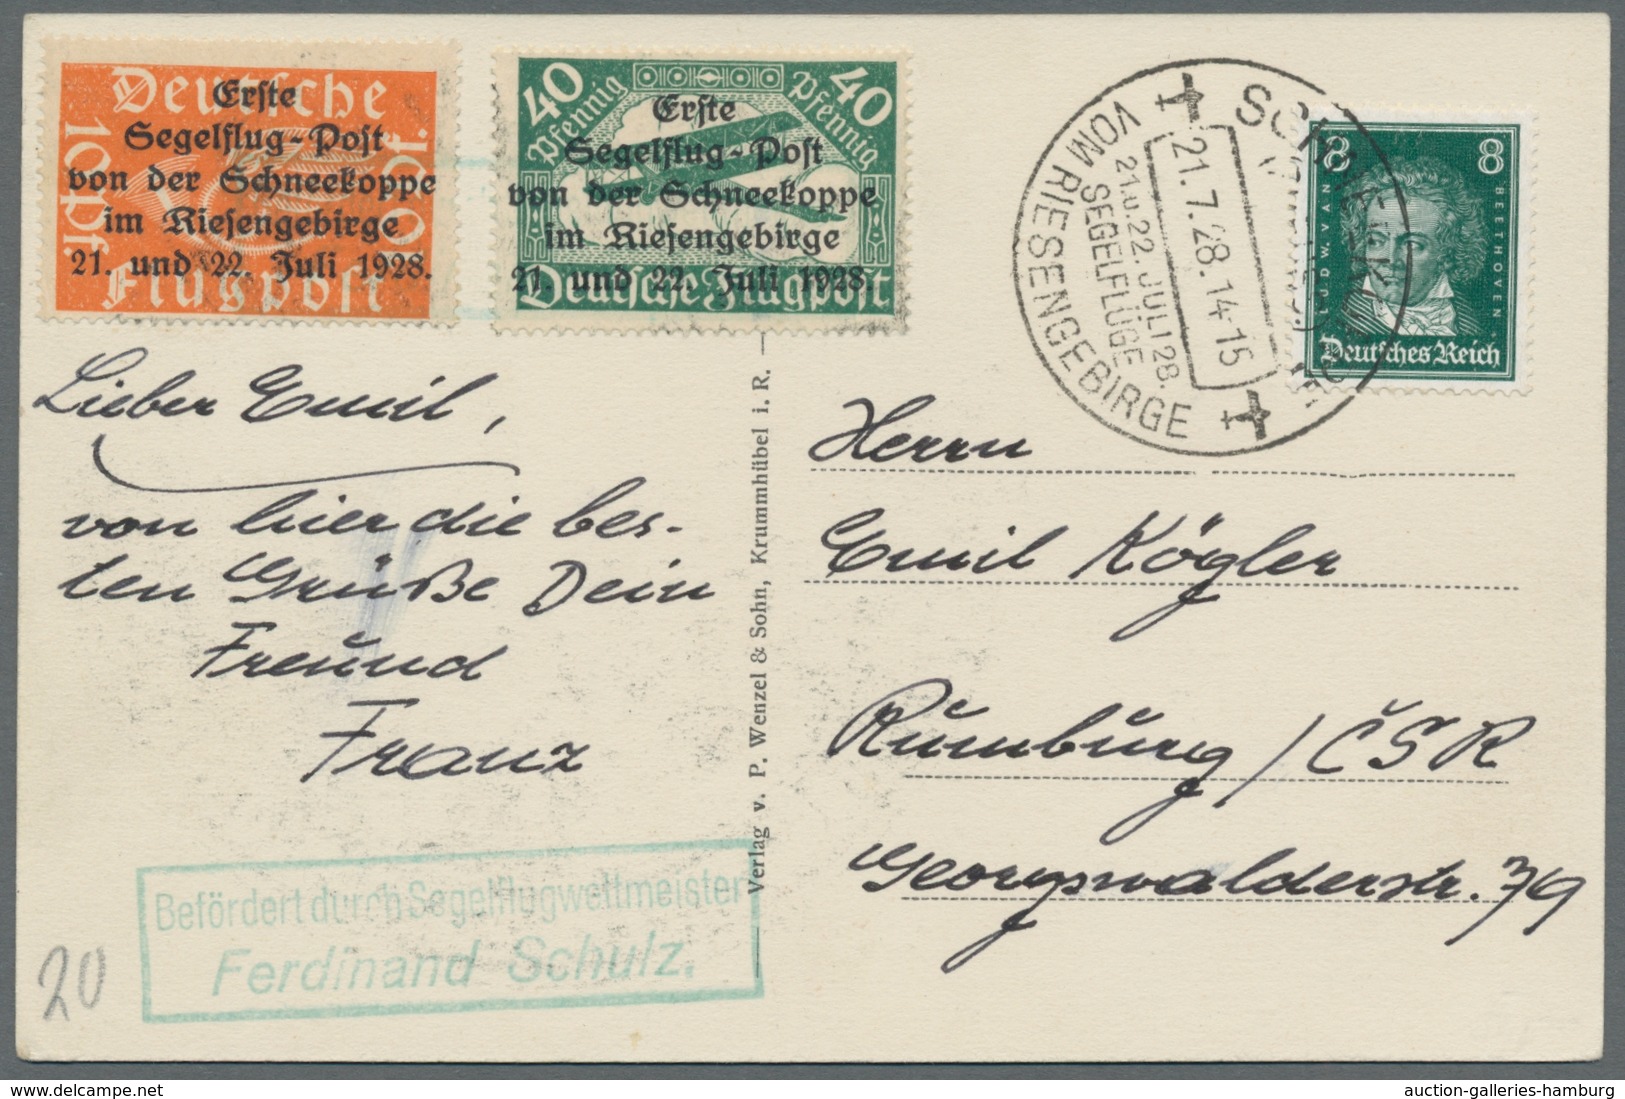 Deutsche
10 Pf.
10 Pf.
Flugpost
Erste
Segelflug-Post
von der Schneekoppe
im Riesengebirge
21. und 22. Juli 1928.
40 Pfennig
40 Pfennig
Deutsche Flugpost
Erste
Segelflug-Post
von der Schneekoppe
im Riesengebirge
21. und 22. Juli 1928.
VOM RIESENGEBIRGE
SEGELFLÜGE
21.u.22.JULI 28.
21.7.28.14-15
8 8
LUDW. VAN BEETHOVEN
Deutsches Reich
Lieber Emil,
von hier die bes-
ten Grüße Dein
Freund
Franz
Verlag v. P. Wenzel & Sohn, Krummhübel i. R.
Herrn
Emil Kögler
Rumburg/ČSR
Georgswalderstr. 79
Befördert durch Segelflugweltmeister
Ferdinand Schulz.
20
auction-galleries-hamburg